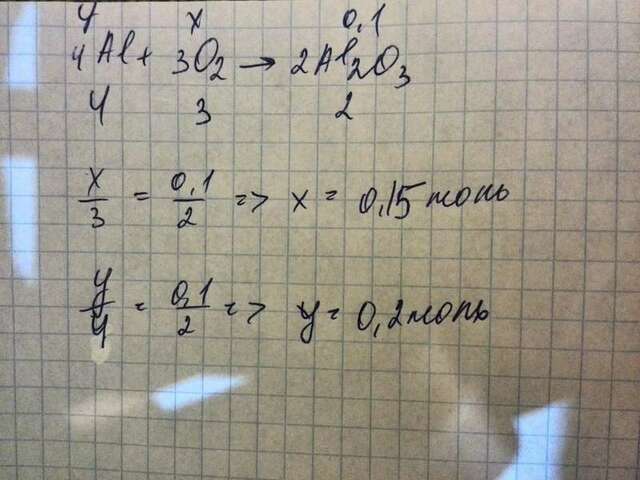 y x 0,1
4Al + 3O₂ → 2Al₂O₃
4 3 2
x/3 = 0,1/2 => x = 0,15 моль
y/4 = 0,1/2 => y = 0,2 моль